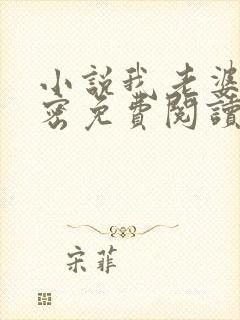 小說我老婆
密免費閱讀
宋菲